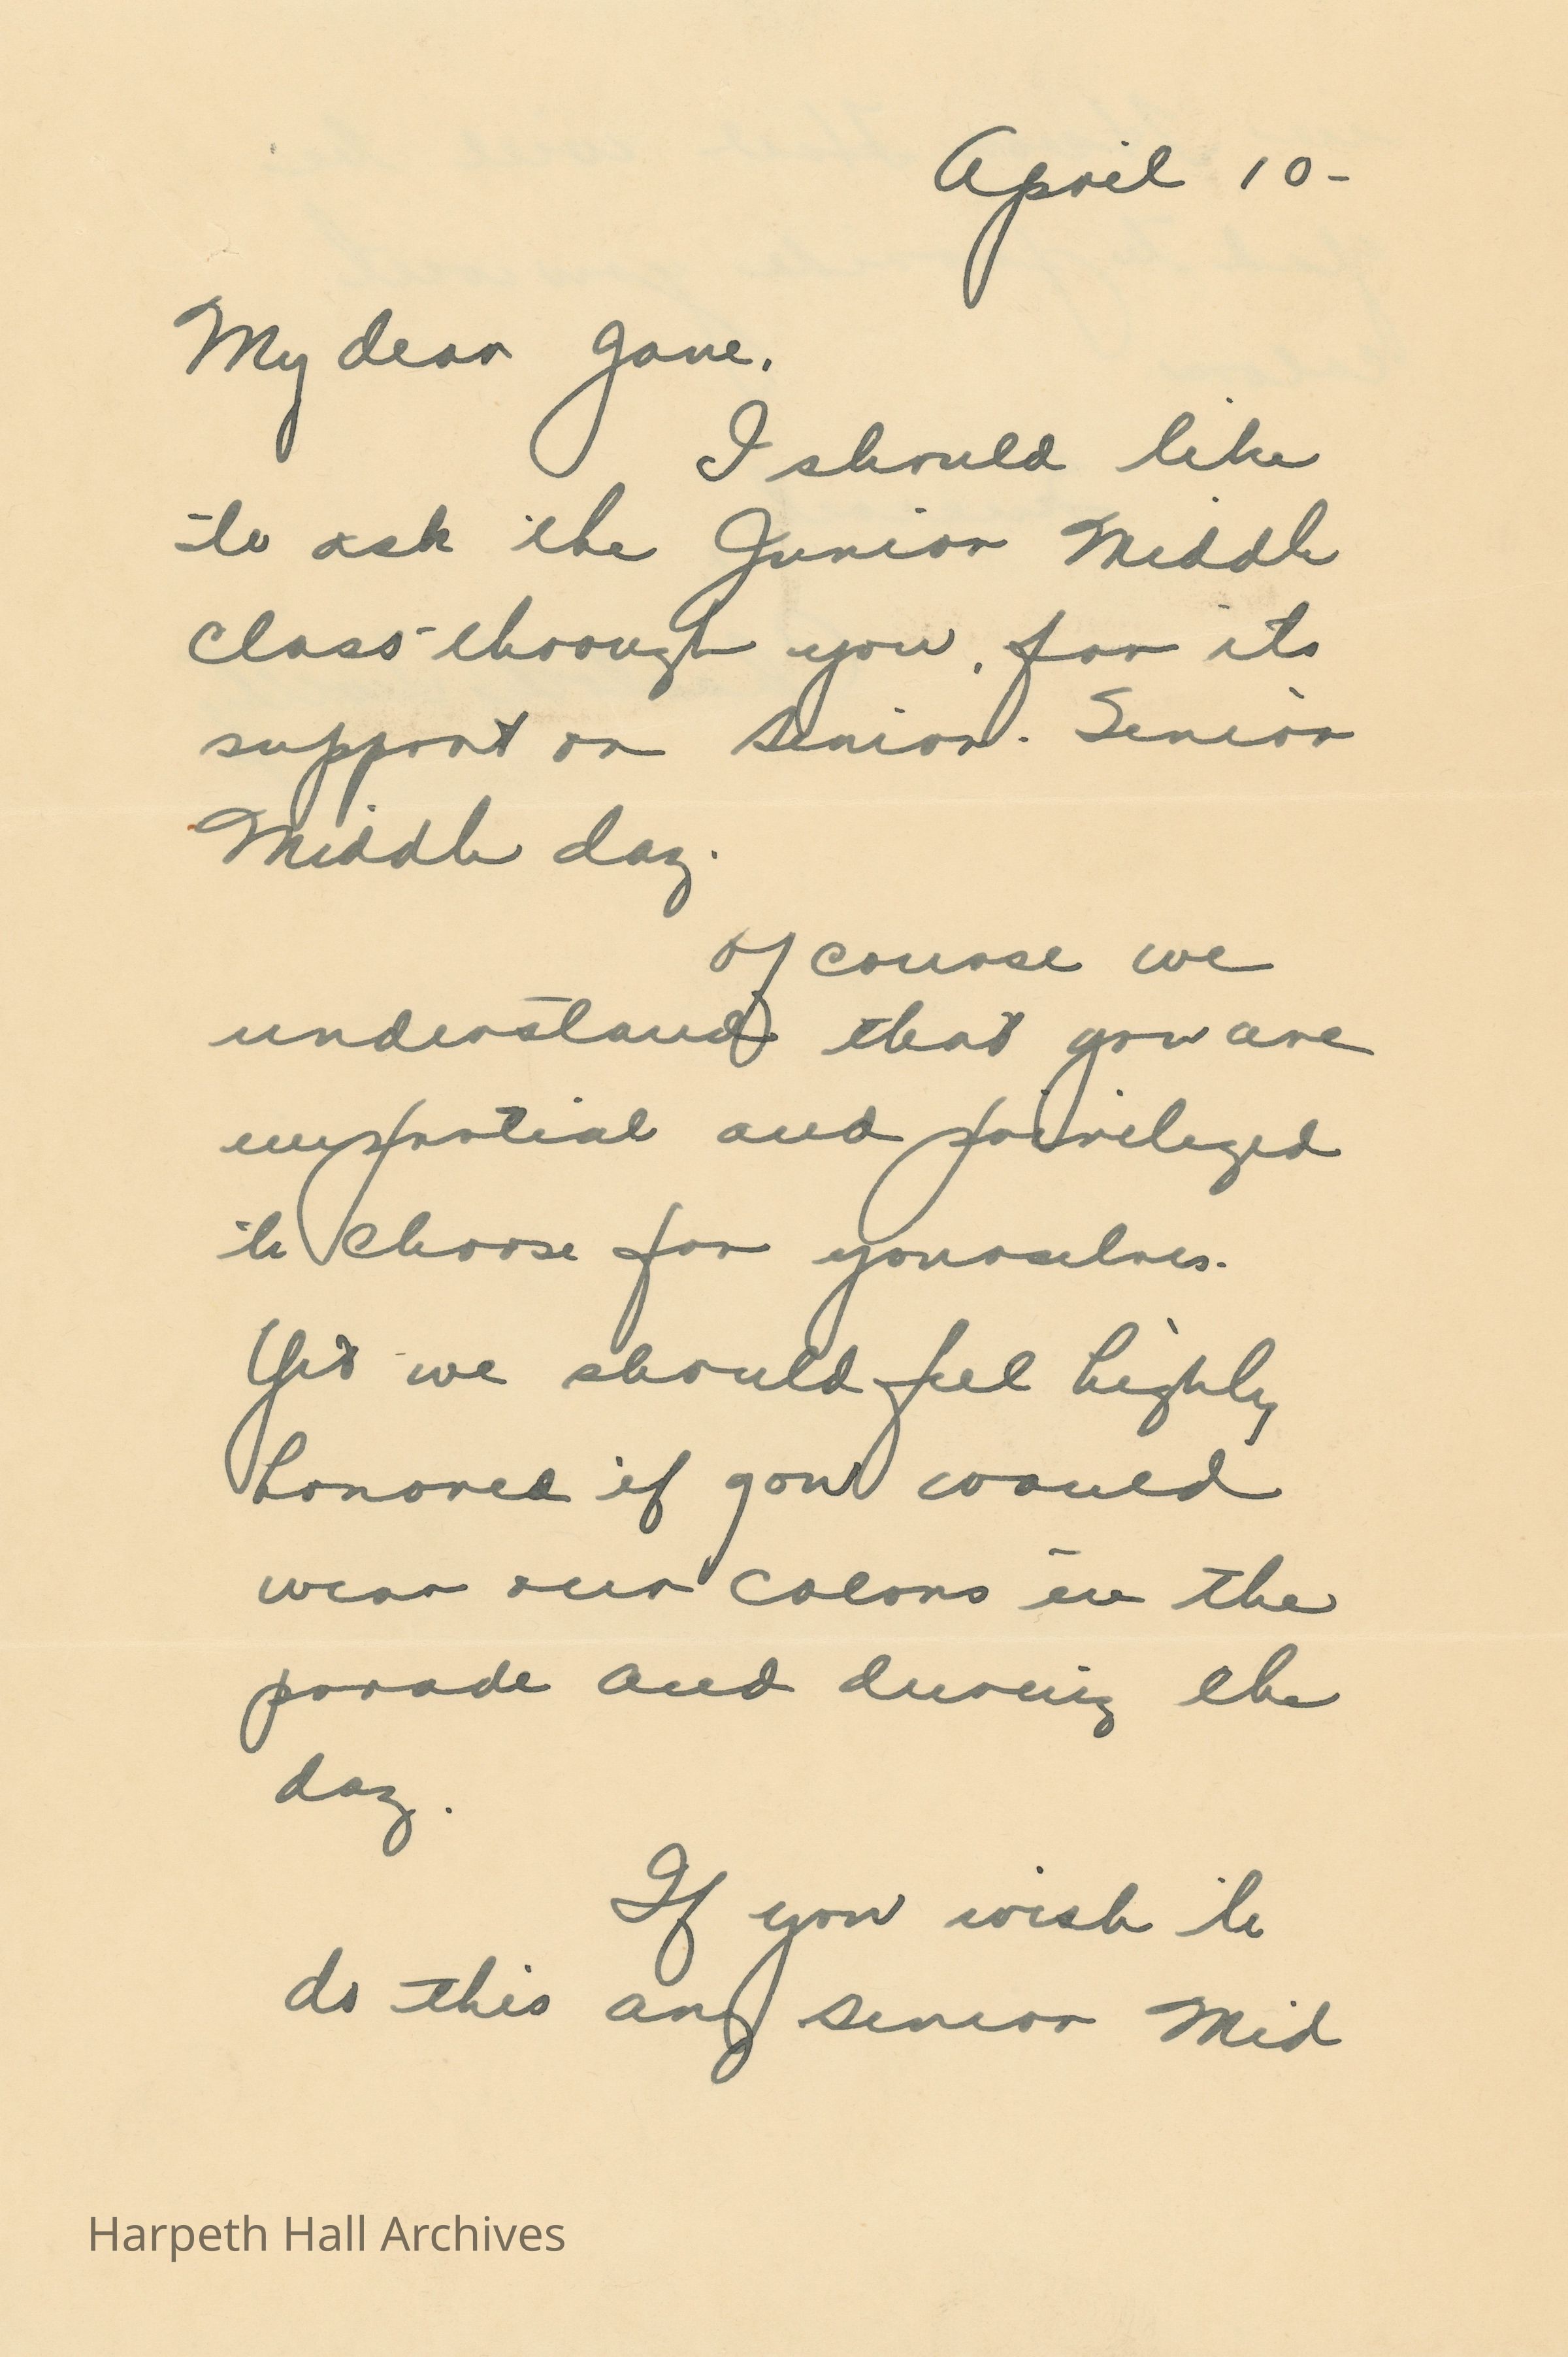 April 10-
My dear Jane,
I should like
to ask the Junior Middle
class through you, for its
support on Senior- Senior
Middle day.
Of course we
understand that you are
impartial and privileged
to choose for yourselves.
Yet we should feel highly
honored if you would
wear our colors in the
parade and during the
day.
If you wish to
do this any Senior Mid
Harpeth Hall Archives